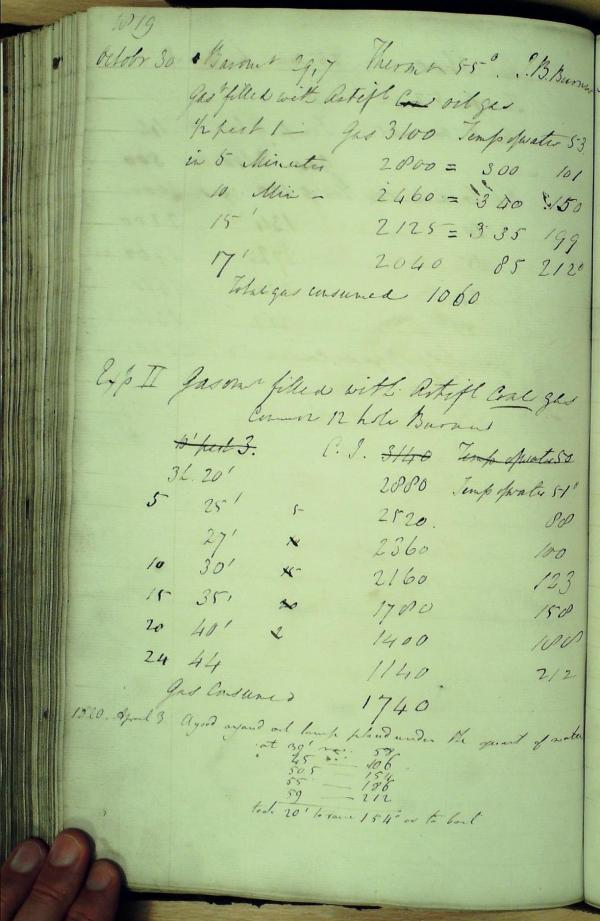 1819
October 30 Baromr 29,7 Thermr 55° J.B. Burner
Gasr filled with Artifl Coal oil gas
½ past 1 — Gas 3100 Temp of water 53
in 5 Minutes 2800 = 300 101
10 Min — 2460 = 340 150
15' 2125 = 335 199
17' 2040 85 212°
Total gas consumed 1060
Exp II Gasomr filled with Artifl Coal gas
Common 12 hole Burner
10' past 3. C. I. 3140 Temp of water 50
3h. 20' 2880 Temp of water 51°
5 25' 5 2520. 88
27' 2360 100
10 30' 2160 123
15 35' 1780 158
20 40' 2 1400 188
24 44 1140 212
Gas Consumed 1740
1820. April 3 A good argand oil lamp placed under the quart of water
at 39' 58
45 — 106
50.5 — 154
55 — 186
59 — 212
took 20' to raise 154° or to boil